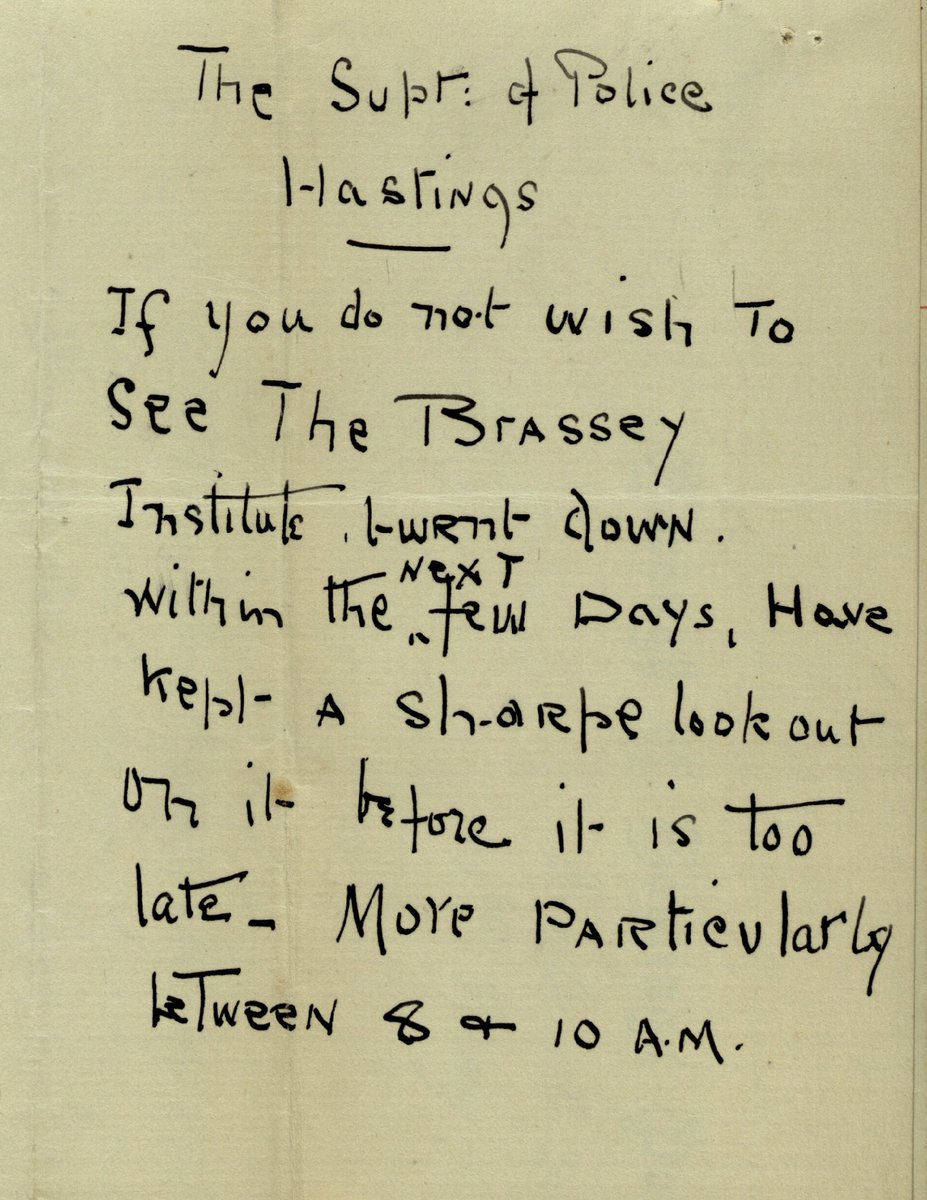 The Supt: of Police
Hastings
If you do not wish To
See The Brassey
Institute, burnt down.
within the NEXT few Days, Have
kept A sharpe look out
on it before it is Too
late - More Particularly
beTWEEN 8 & 10 A.M.